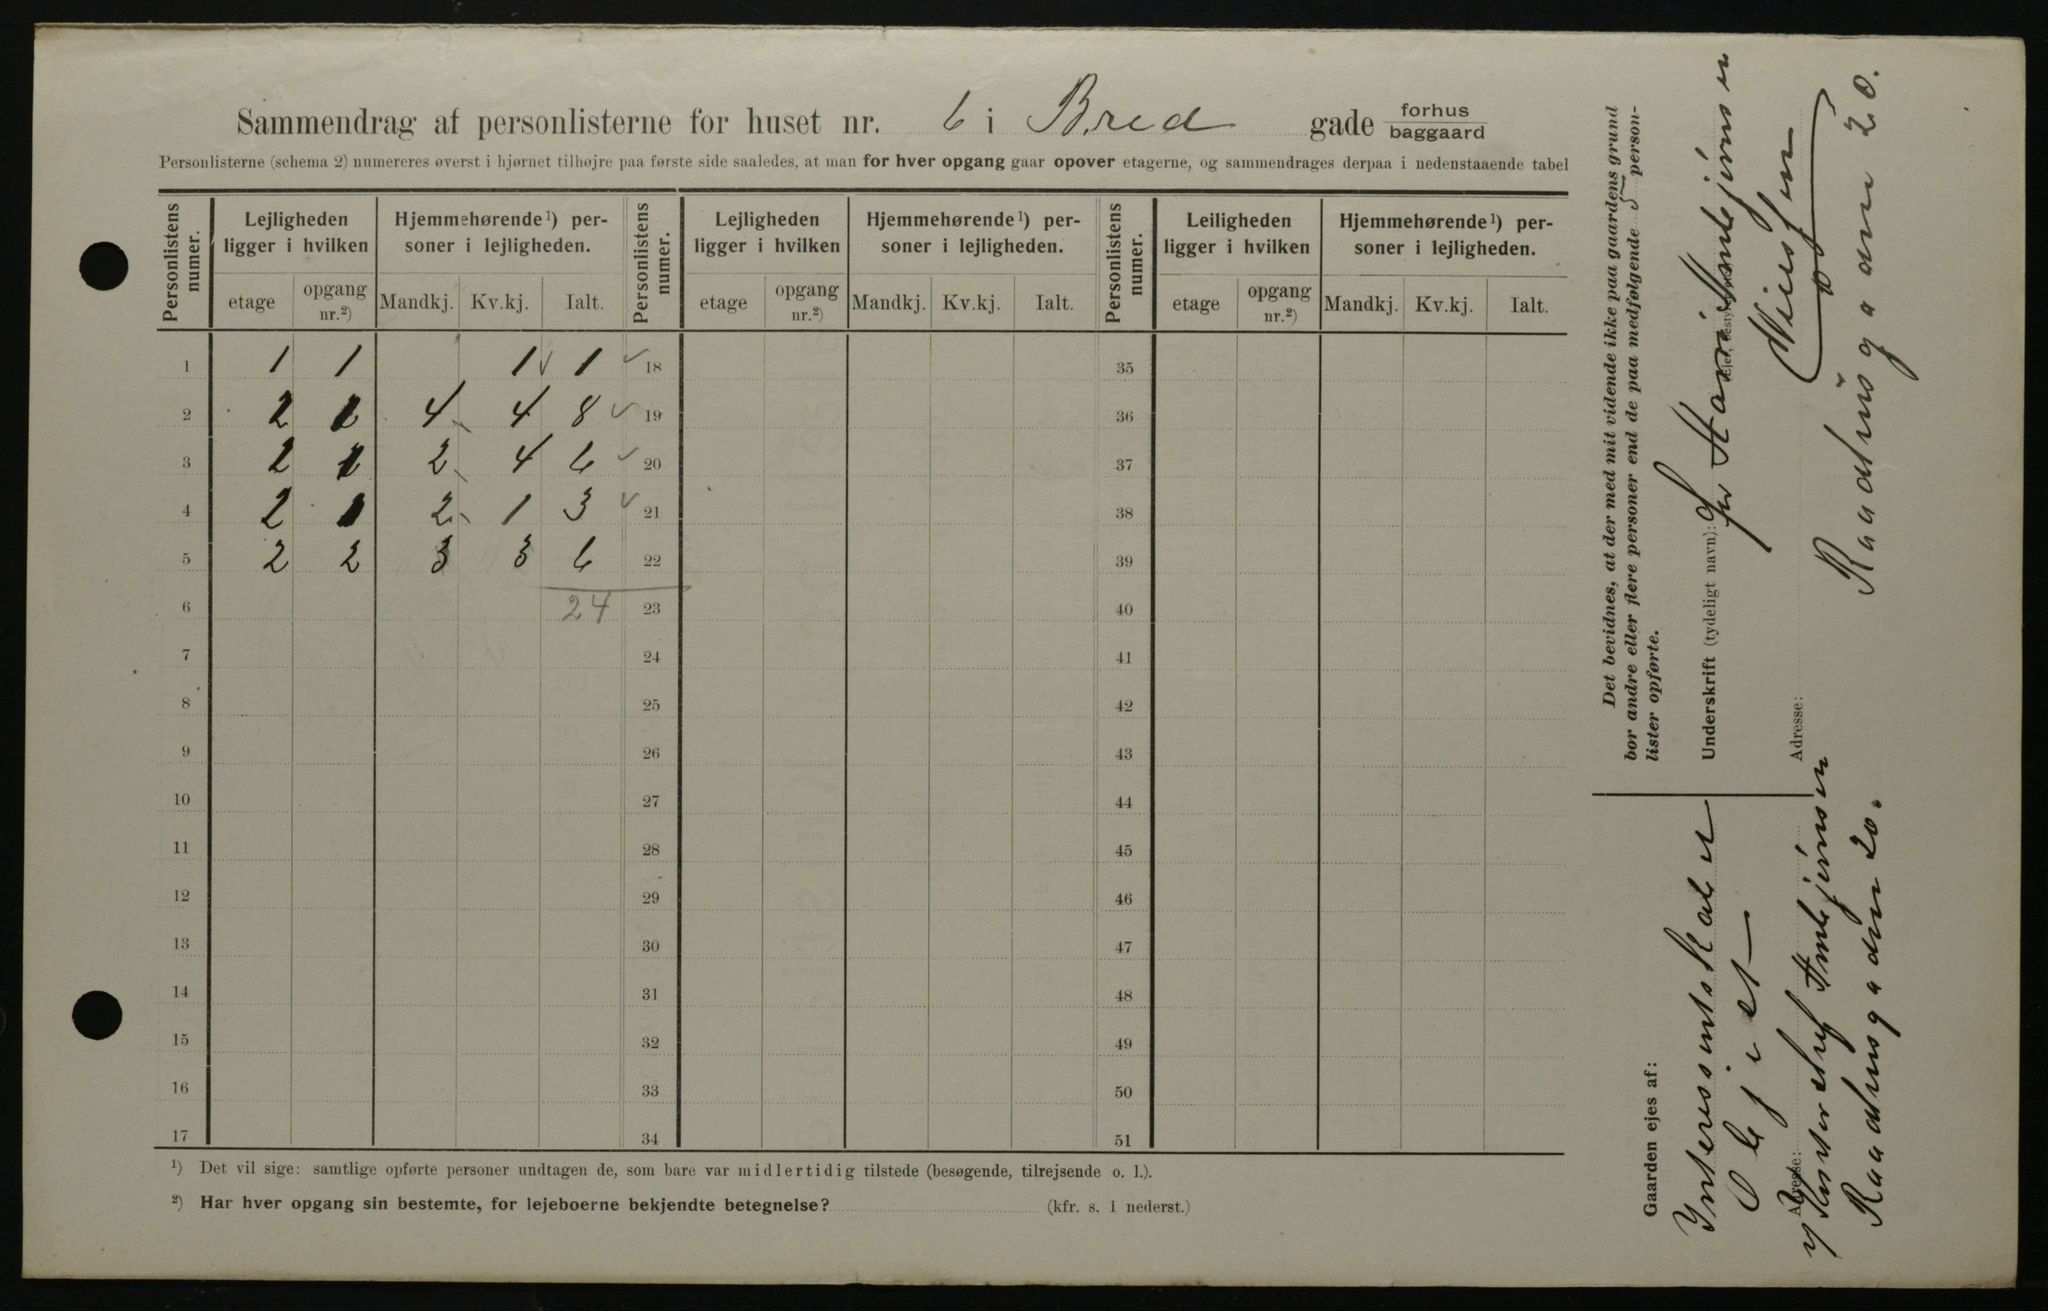 Sammendrag af personlisterne for huset nr. 6 i Bred gade forhus baggaard
Personlisterne (schema 2) numereres øverst i hjørnet tilhøjre paa første side saaledes, at man for hver opgang gaar opover etagerne, og sammendrages derpaa i nedenstaaende tabel
Personlistens numer. Lejligheden ligger i hvilken Hjemmehørende¹) personer i lejligheden. Personlistens numer. Lejligheden ligger i hvilken Hjemmehørende¹) personer i lejligheden. Personlistens numer. Leiligheden ligger i hvilken Hjemmehørende¹) personer i lejligheden.
etage opgang nr.²) Mandkj. Kv.kj. Ialt. etage opgang nr.²) Mandkj. Kv.kj. Ialt. etage opgang nr.²) Mandkj. Kv.kj. Ialt.
1 1 1 1 1 18 35
2 2 1 4 4 8 19 36
3 2 1 2 4 6 20 37
4 2 1 2 1 3 21 38
5 2 2 3 3 6 22 39
6 24 23 40
7 24 41
8 25 42
9 26 43
10 27 44
11 28 45
12 29 46
13 30 47
14 31 48
15 32 49
16 33 50
17 34 51
¹) Det vil sige: samtlige opførte personer undtagen de, som bare var midlertidig tilstede (besøgende, tilrejsende o. l.).
²) Har hver opgang sin bestemte, for lejeboerne bekjendte betegnelse? (kfr. s. 1 nederst.)
Det bevidnes, at der med mit vidende ikke paa gaardens grund
bor andre eller flere personer end de paa medfølgende 5 person-
lister opførte.
Underskrift (tydeligt navn):
Adresse: Raadhusgaden 20.
Gaarden ejes af:
Interessentskabet
Adresse:
Raadhusgaden 20.